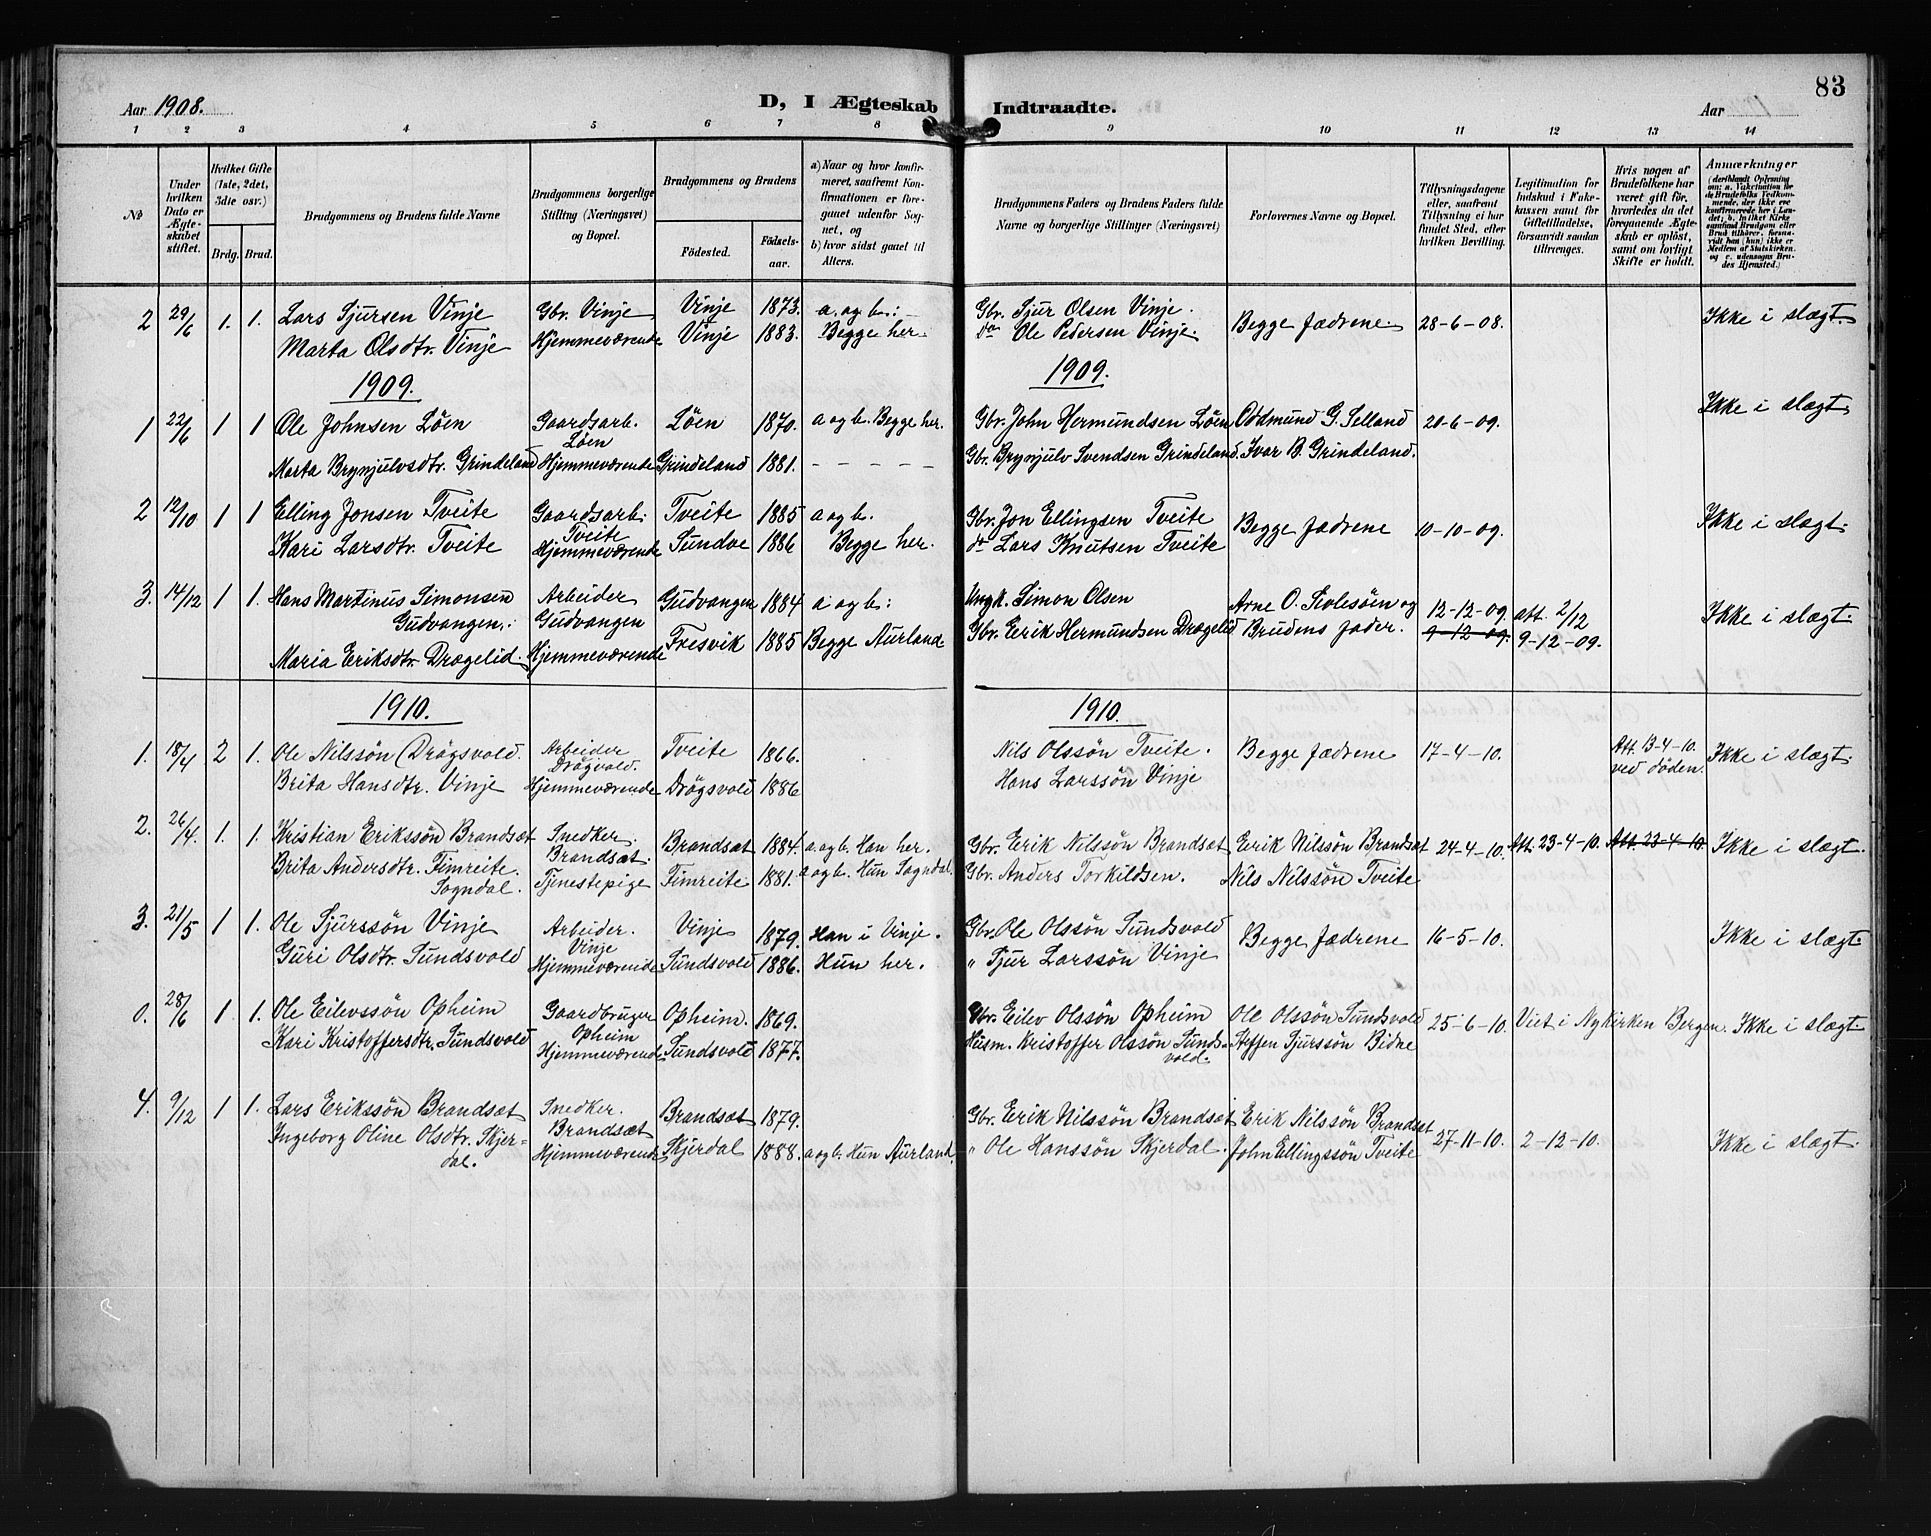 83
Aar 1908.
D, I Ægteskab Indtraadte.
Aar
1 2 3 4 5 6 7 8 9 10 11 12 13 14
No
Under hvilken Dato er Ægteskabet stiftet.
Hvilket Gifte (1ste, 2det, 3die osv.)
Brdg. Brud.
Brudgommens og Brudens fulde Navne
Brudgommens borgerlige Stilling (Næringsvei) og Bopæl.
Brudgommens og Brudens
Fødested. Fødselsaar.
a) Naar og hvor konfirmeret, saafremt Konfirmationen er foregaaet udenfor Sognet, og
b) hvor sidst gaaet til Alters.
Brudgommens Faders og Brudens Faders fulde Navne og borgerlige Stillinger (Næringsvei)
Forlovernes Navne og Bopæl.
Tillysningsdagene eller, saafremt Tillysning ei har fundet Sted, efter hvilken Bevilling.
Legitimation for Indskud i Enkekassen samt for Giftetilladelse, forsaavidt saadan tiltrænges.
Hvis nogen af Brudefolkene har været gift før, hvorledes da det foregaaende Ægteskab er opløst, samt om lovligt Skifte er holdt.
Anmærkninger
2 29/6 1. 1. Lars Sjursen Vinje Gbr. Vinje Vinje 1873. a. og b.: Gbr. Sjur Olsen Vinje. Begge Fædrene. 28-6-08. Ikke i slægt.
Marta Olsdtr. Vinje Hjemmeværende Vinje 1883. Begge her. do Ole Pedersen Vinje.
1909. 1909.
1 22/6 1 1 Ole Johnsen Løen Gaardsarb. Løen Løen 1870. a og b. Begge her. Gbr. John Hermundsen Løen Oddmund G. Selland 20-6-09. Ikke i slægt.
Marta Brynjulvsdtr. Grindeland Hjemmeværende Grindeland 1881. – – – – – Gbr. Brynjulv Svendsen Grindeland. Ivar B. Grindeland.
2 12/10 1 1 Elling Jonsen Tveite Gaardsarb. Tveite Tveite 1885 a og b. Gbr. Jon Ellingsen Tveite Begge Fædrene 10-10-09. Ikke i slægt.
Kari Larsdtr. Tveite Hjemmeværende Sundve 1886 Begge her. do Lars Knutsen Tveite
3. 14/12 1 1. Hans Martinus Simonsen Gudvangen. Arbeider Gudvangen Gudvangen 1884 a og b: Ungk. Simon Olsen Arne O. og 12-12-09. att. 2/12 Ikke i slægt.
Maria Eriksdtr. Drægelid Hjemmeværende Fresvik 1885 Begge Aurland Gbr. Erik Hermundsen Drægelid Brudens Fader. 9-12-09. 9-12-09.
1910. 1910.
1. 18/4 2 1. Ole Nilssøn (Drøgsvold. Arbeider Drøgvold. Tveite 1866. Nils Olssøn Tveite. Begge Fædrene 17-4-10. Att. 13-4-10. ved døden. Ikke i slægt.
Brita Hansdtr. Vinje Hjemmeværende Drøgsvold 1886 Hans Larssøn Vinje
2. 26/4. 1. 1. Kristian Erikssøn Brandsæt Snedker. Brandsæt. Brandsæt 1884. a. og b. Han her. Gbr. Erik Nilssøn Brandsæt Erik Nilssøn Brandsæt 24-4-10. Att. 23-4-10. Att. 23-4-10. Ikke i slægt.
Brita Andersdtr. Fimreite. Sogndal. Tjenestepige Fimreite 1881. a og b. Hun Sogndal. Gbr. Anders Torkildsen. Nils Nilssøn Tveite
3. 21/5 1 1 Ole Sjurssøn Vinje Arbeider. Vinje Vinje 1879. Han i Vinje. Gbr. Ole Olssøn Sundsvold Begge Fædrene 16-5-10. Ikke i slægt.
Guri Olsdtr. Sundsvold Hjemmeværende Sundsvold 1886. Hun her. " Sjur Larssøn Vinje
0. 28/6 1 1. Ole Eilevssøn Opheim Gaardbruger Opheim Opheim. 1869. Gbr. Eilev Olssøn Opheim Ole Olssøn Sundsvold 25-6-10. Viet i Nykirken Bergen. Ikke i slægt.
Kari Kristoffersdtr. Sundsvold Hjemmeværende Sundsvold 1877. Husm. Kristoffer Olssøn Sundsvold. Steffen Sjurssøn Bidne
4. 9/12 1 1. Lars Erikssøn Brandsæt Snedker. Brandsæt Brandsæt 1879. Gbr. Erik Nilssøn Brandsæt Erik Nilssøn Brandsæt 27-11-10. 2-12-10. Ikke i slægt.
Ingeborg Oline Olsdtr. Skjerdal. Hjemmeværende Skjerdal 1888. a og b. Hun Aurland. " Ole Hanssøn Skjerdal. John Ellingssøn Tveite